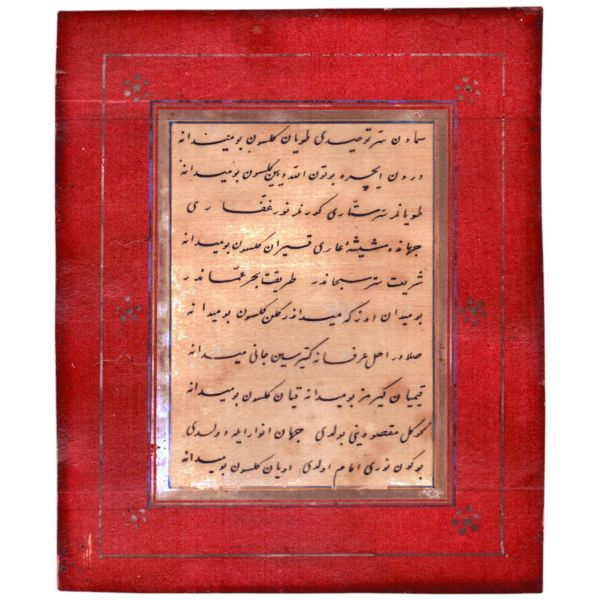 سر توحیدی طویان کلسون بو میدانه
درون ایچره بوتون الله دیین کلسون بو میدانه
طویانلر سر ستاری کورنلر نور غفاری
جهانده شیشهٔ عاری قیران کلسون بو میدانه
شریعت سر سبحاندر طریقت بحر عماندر
بو میدان اوزکه میداندر کلن کلسون بو میدانه
صلادر اهل عرفانه کتیرسین جانی میدانه
قیمیان کیرمز بو میدانه قیان کلسون بو میدانه
کوکل مقصودینی بولدی جهان انوار ایله دولدی
بو کون نوری امام اولدی اویان کلسون بو میدانه